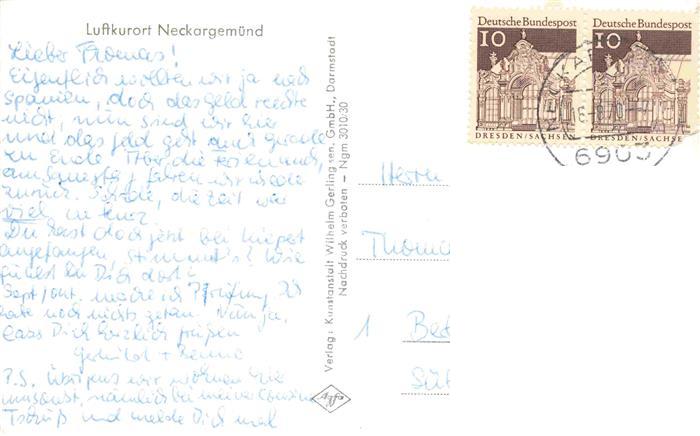 Luftkurort Neckargemünd
Lieber Thomas!
Eigentlich wollten wir ja nach
Spanien, doch das Geld reichte
nicht, nun sind wir hier
und das Geld geht auch gerade
zu Ende. Aber die Ferien auch,
am fahren wir wieder
zurück. Schade, die Zeit war
viel zu kurz.
Du hast doch jetzt bei
angefangen, stimmt's? Wie
gefällt es Dir dort?
Sept/Okt. mache ich Prüfung. Ich
habe noch nichts getan. Na ja,
lass Dich herzlich grüßen
Gerhild +
P.S. Übrigens wir wohnen hier
umsonst, nämlich bei meiner Cousine
Tschüß und melde Dich mal
Verlag: Kunstanstalt Wilhelm Gerling sen. GmbH., Darmstadt
Nachdruck verboten – Ngm 3010/30
Deutsche Bundespost Deutsche Bundespost
10 10
DRESDEN/SACHSEN DRESDEN/SACHSEN
6903
Herrn
Thoma
1 Be
Sü